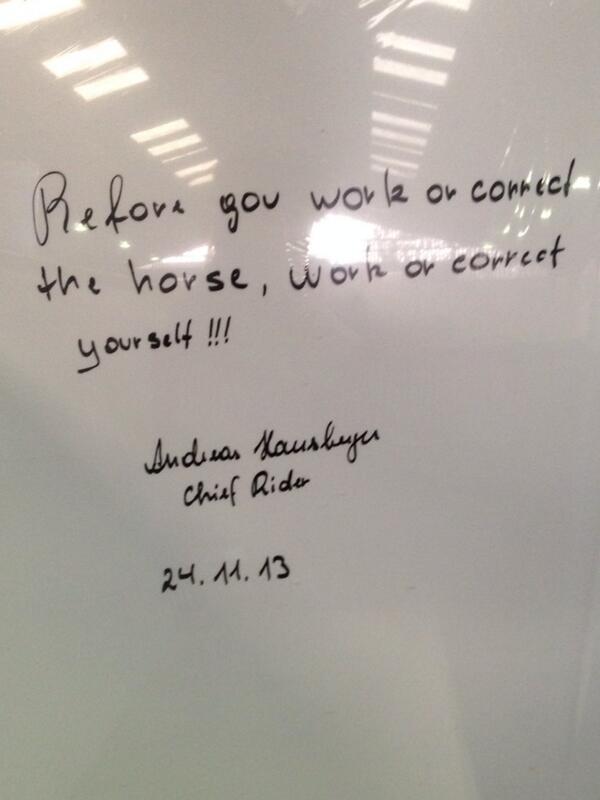 Before you work or correct
the horse, work or correct
yourself !!!
Andreas Hausberger
Chief Rider
24.11.13